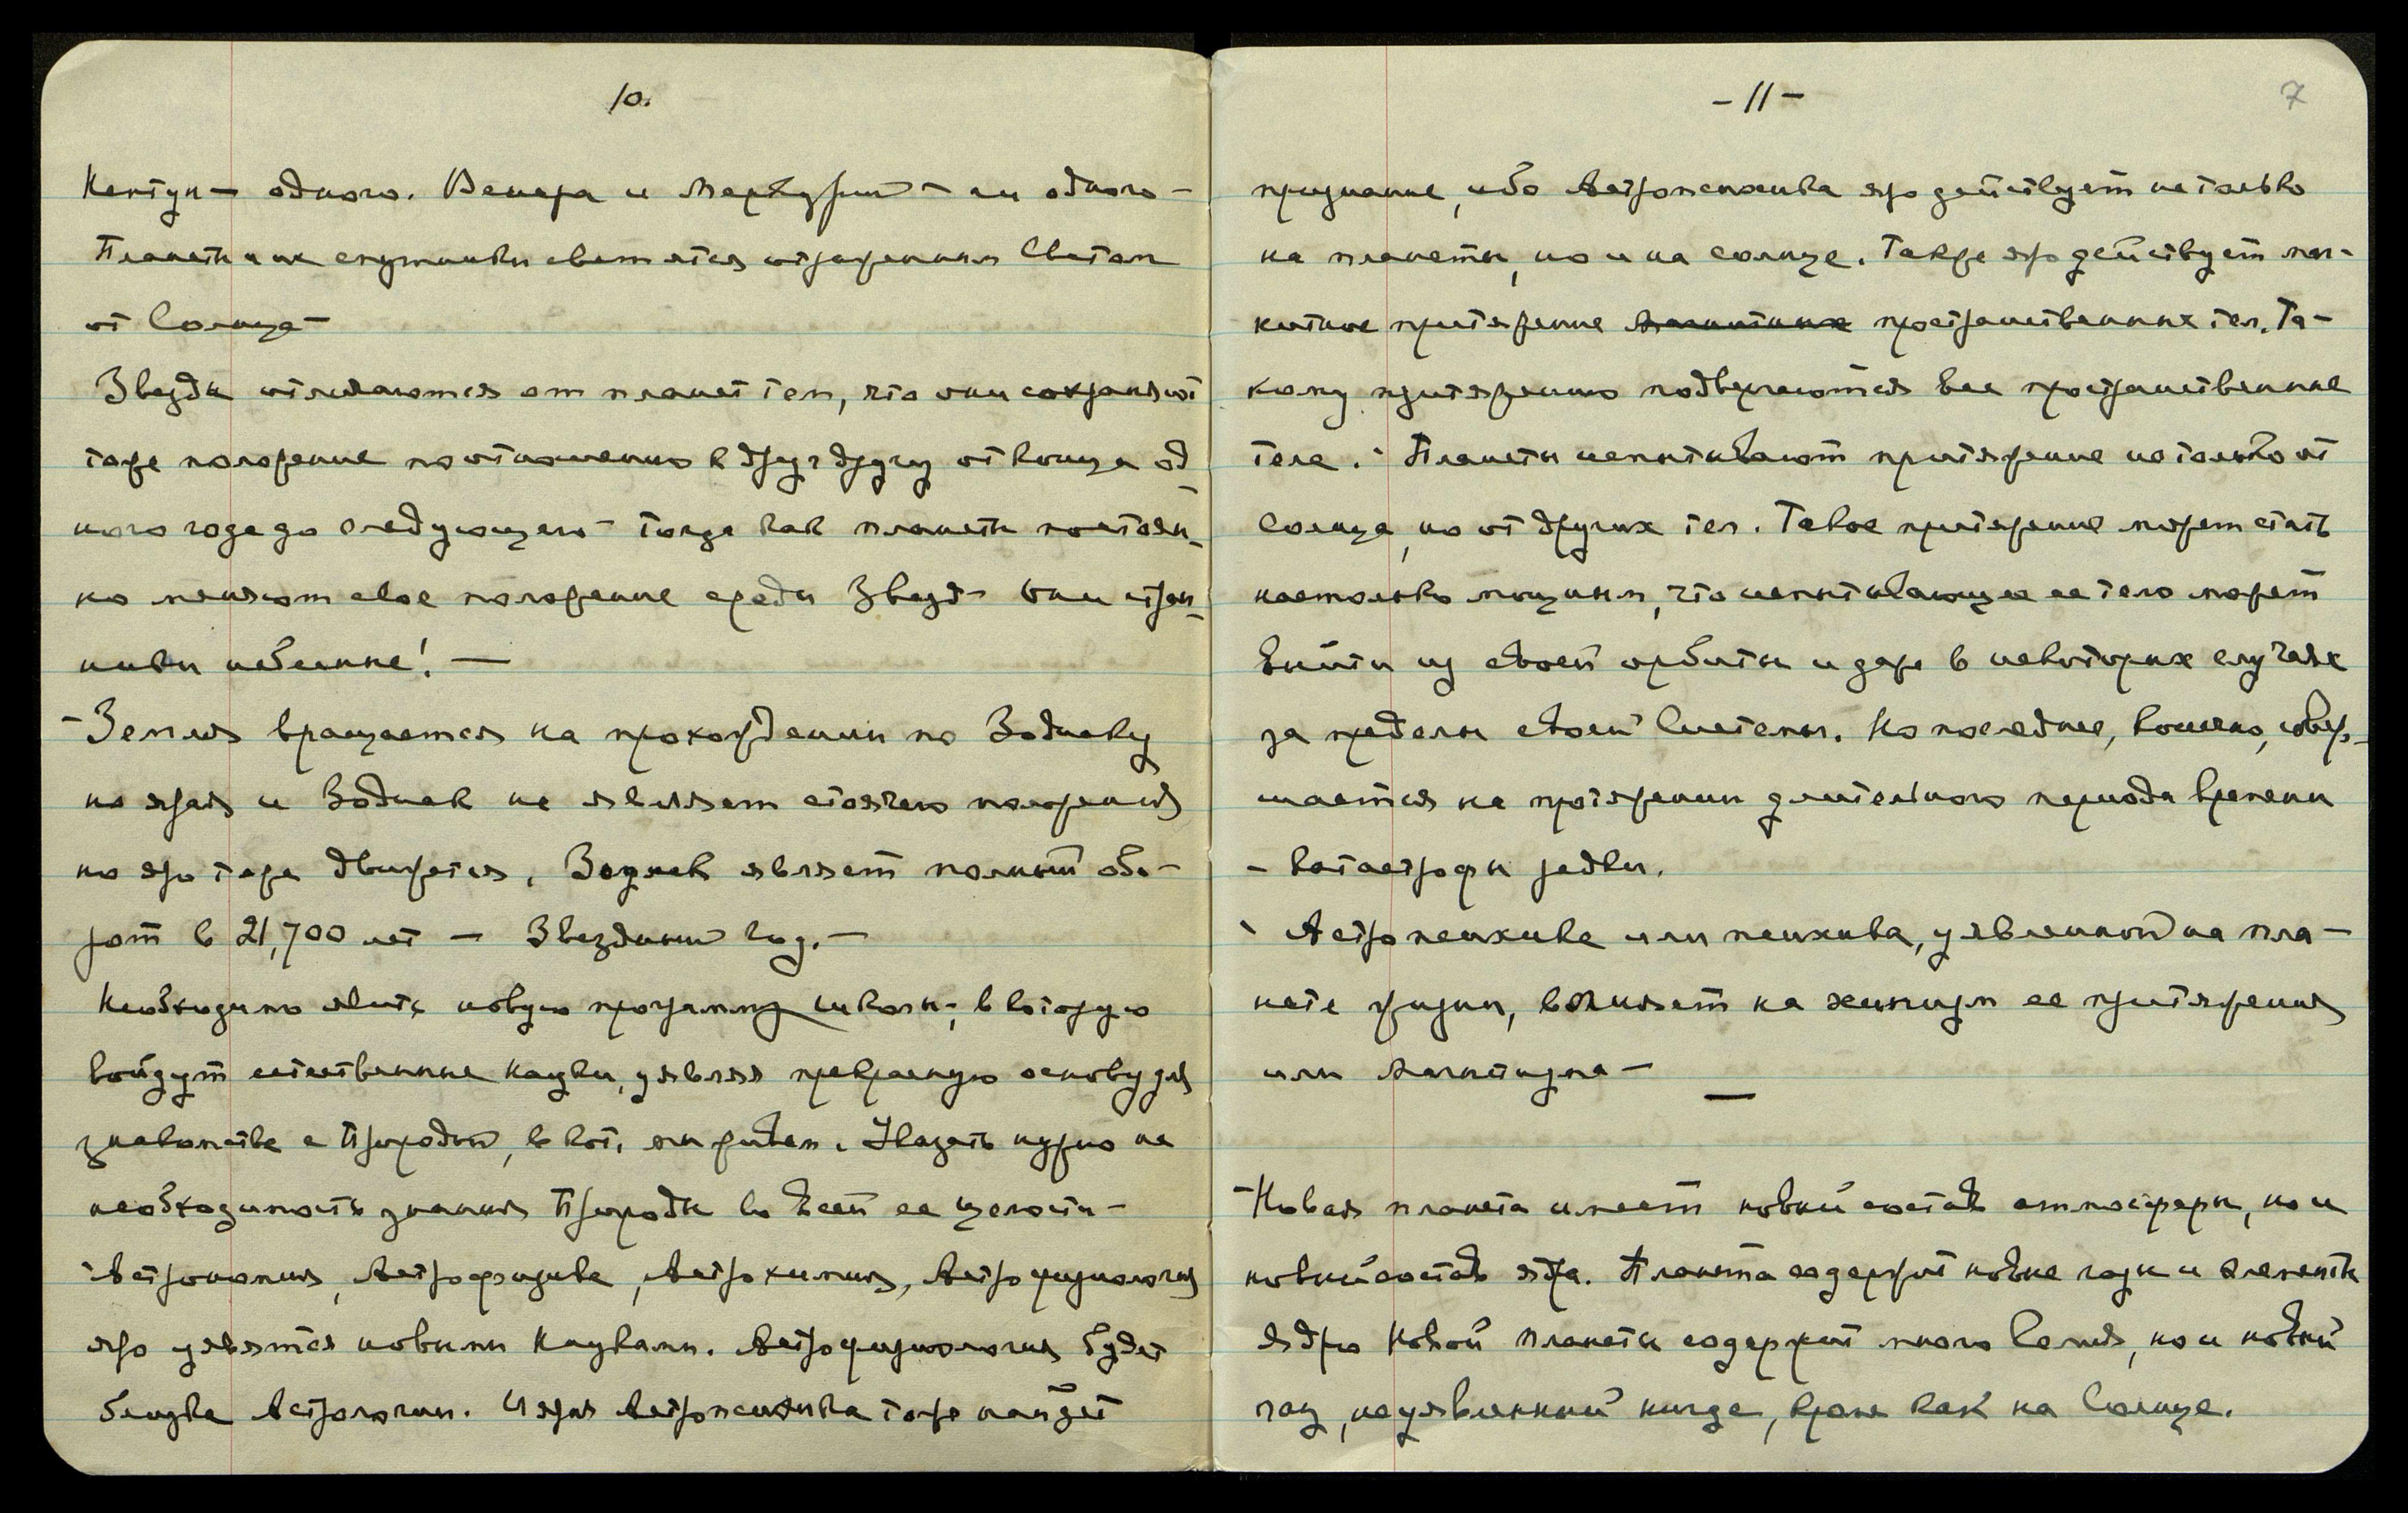 10.
Нептун — одного. Венера и Меркурий — ни одного —
Планеты и их спутники светятся отраженным Светом
от Солнца —
Звезды отличаются от планет тем, что они сохраняют
тоже положение по отношению к друг другу от конца од
ного года до следующего — тогда как планеты постоян-
но меняют свое положение среди Звезд — Они стран-
ники небесные! —
— Земля вращается на прохождении по Зодиаку
но яра и Зодиак не являет стоячего положения
но яро тоже движется, Зодиак являет полный обо-
рот в 21,700 лет — Звездный Год. —
Необходимо явить новую программу школы, в которую
войдут естественные Науки, уявляя прекрасную основу для
знакомства с Природой, в кот. мы живем. Указать нужно на
необходимость знания Природы во всей ее целости —
Астрономия, Астрофизика, Астрохимия, Астрофизиология
яро уявятся новыми Науками. Астрофизиология будет
близка Астрологии. И ярая Астропсихика тоже найдет
- 11 -
7
признание, ибо Астропсихика яро действует не только
на планеты, но и на солнце. Также яро действует маг-
нитное притяжение магнитных пространственных тел. Та-
кому притяжению подвергаются все пространственные
тела. Планеты испытывают притяжение не только от
Солнца, но от других тел. Такое притяжение может стать
настолько мощным, что испытывающее ее тело может
выйти из своей орбиты и даже в некоторых случаях
за пределы своей Системы. Но последнее, конечно, совер-
шается на протяжении длительного периода времени
— катастрофы редки.
Астропсихика или психика, уявленной на пла-
нете жизни, влияет на химизм ее притяжения
или Магнетизма —
— Новая планета имеет новый состав атмосферы, но и
новый состав ядра. Планета содержит новые газы и элементы
Ядро Новой планеты содержит много Гелия, но и новый
газ, неуявленный нигде, кроме как на Солнце.